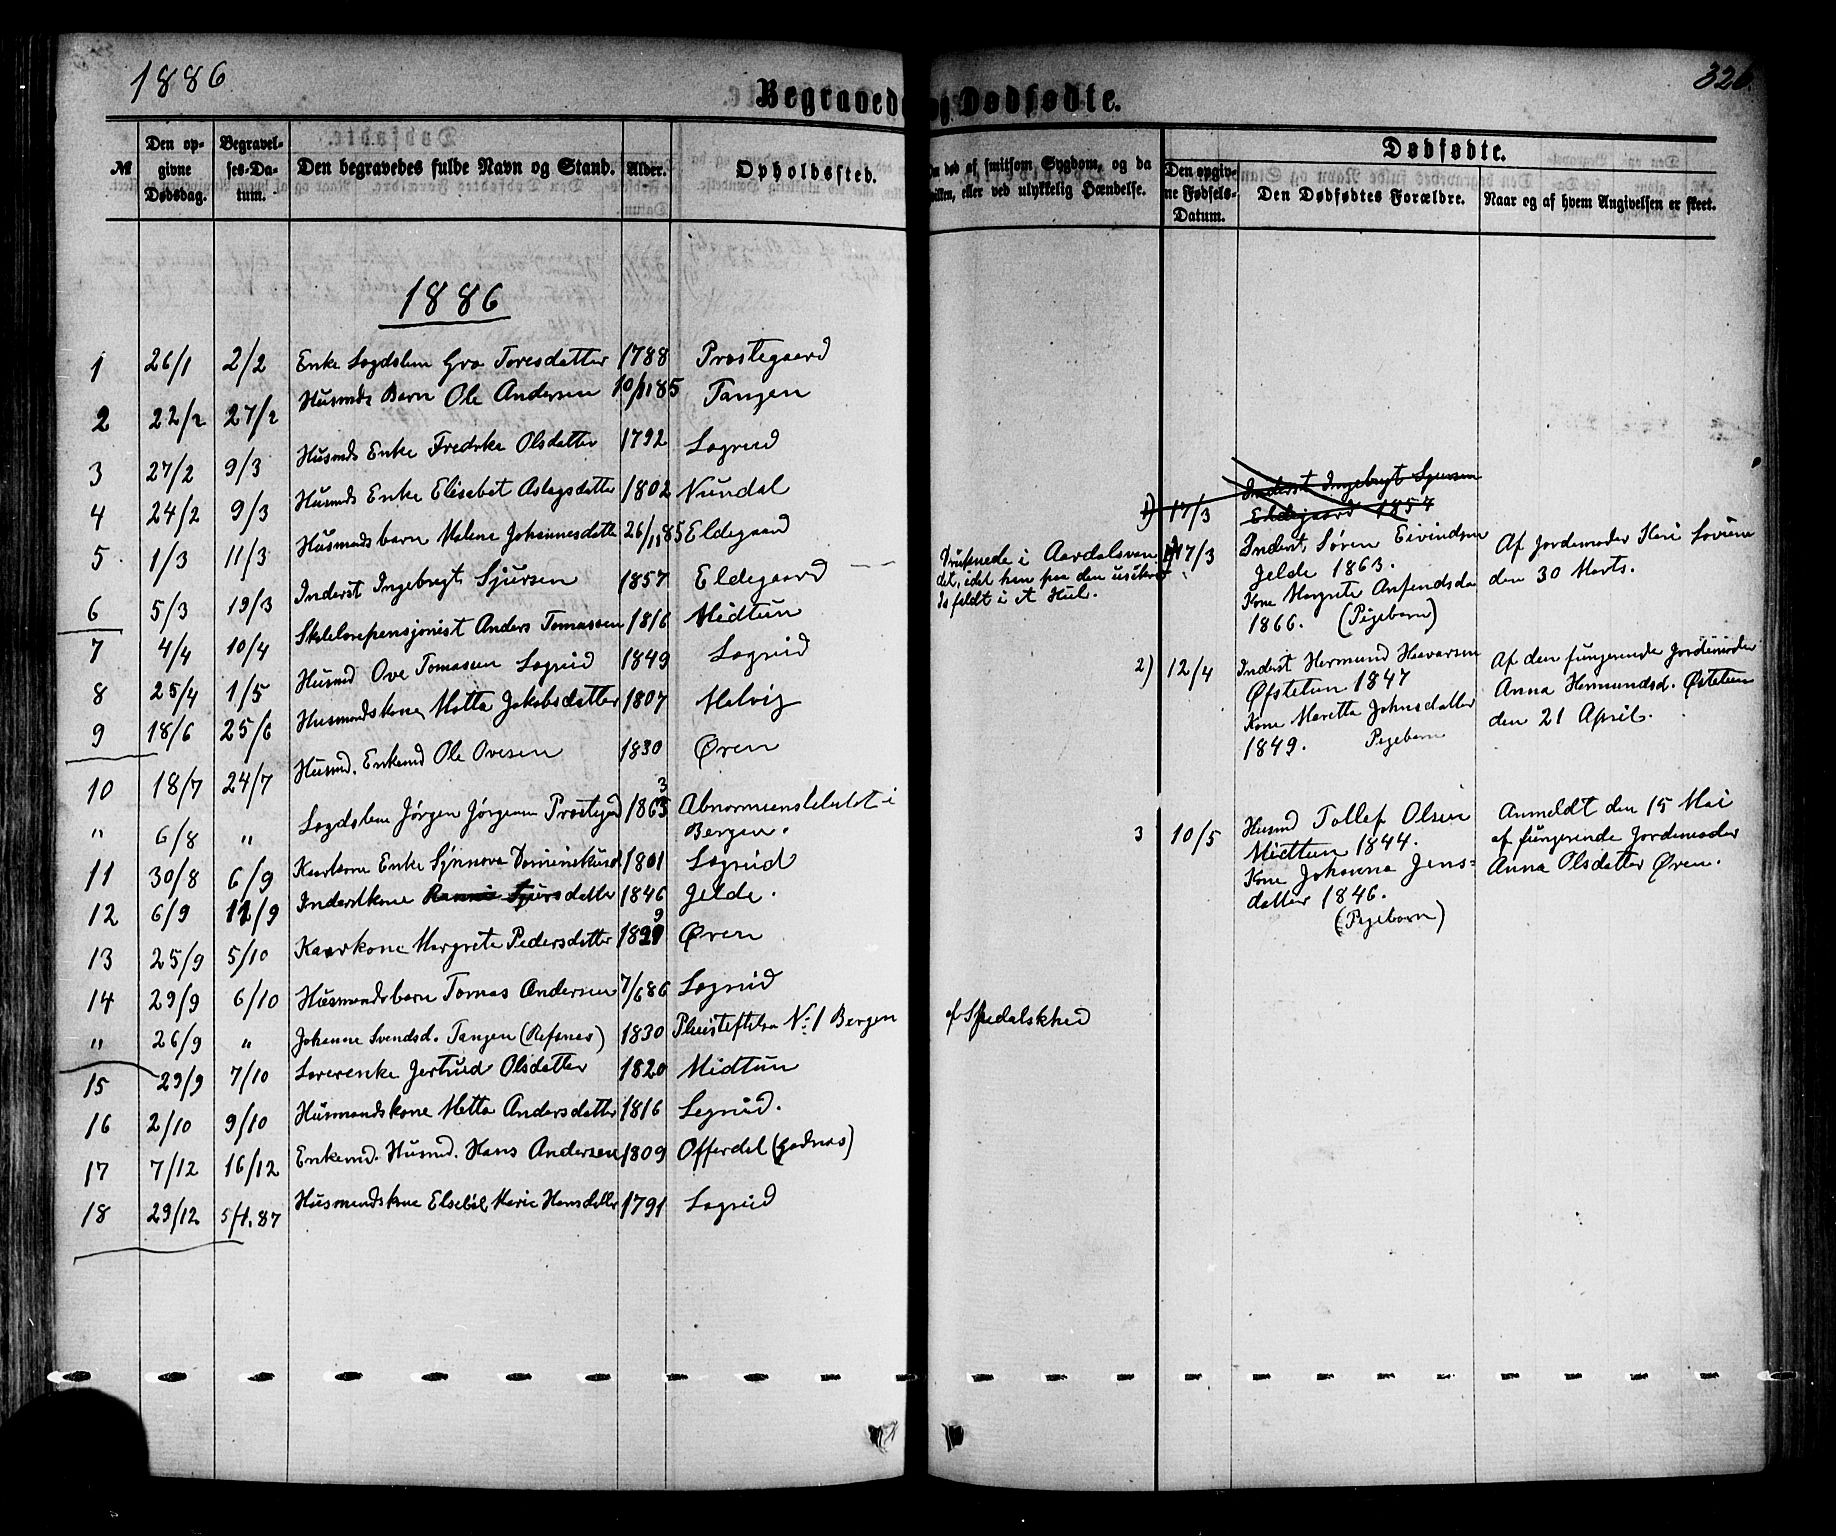 1886
326.
Begravede og Dødfødte.
№ Den opgivne Dødsdag. Begravelses-Datum. Den begravedes fulde Navn og Stand. Alder. Opholdssted. død af smitsom Sygdom, og da hvilken, eller ved ulykkelig Hændelse.
Dødfødte.
Den opgivne Fødsels-Datum. Den Dødfødtes Forældre. Naar og af hvem Angivelsen er skeet.
1886
1 26/1 2/2 Enke Lægdslem Gro Toresdatter 1788 Prestegaard
2 22/2 27/2 Husmds Barn Ole Andersen 10/1185 Tangen
3 27/2 9/3 Husmds Enke Fredrke Olsdatter 1792 Lægreid
4 24/2 9/3 Husmds Enke Elisabet Aslagsdatter 1802 Nundal
5 1/3 11/3 Husmandsbarn Malene Johannesdatte 26/1185 Eldegaard
6 5/3 19/3 Inderst Ingebrygt Sjursen 1857 Eldegaard
Druknede i Aardalsvan
det, idet han paa den usikre
Is feldt i et Hul.
7 4/4 10/4 Skolelærepensjonist Anders Tomassen 1816 Midtun
8 25/4 1/5 Husmd Ove Tomasen Lægreid 1849 Lægreid
9 18/6 25/6 Husmandskone Metta Jakobsdatter 1807 Melvig
10 18/7 24/7 Husmd. Enkemd Ole Ovesen 1830 Øren
" 6/8 " Lægdslem Jørgen Jørgensen Prestegd 1863 Abnormeanstaltet i
Bergen.
11 30/8 6/9 Kaarkone Enke Synnova 1801 Lægreid
12 6/9 11/9 Inderstkone Sjursdatter 1846 Jelde.
13 25/9 5/10 Kaarkone Margrete Pedersdatter 1829 Øren
14 29/9 6/10 Husmandsbarn Tomas Andersen 7/686 Lægreid
" 26/9 " Johanne Svendsd. Tangen (Refsnæs) 1830 Pleiestiftelsen No: 1 Bergen af Spedalskhed
15 29/9 7/10 Lærerenke Jertrud Olsdatter 1820 Midtun
16 2/10 9/10 Husmandskone Metta Andersdatter 1816 Legreid.
17 7/12 16/12 Enkemd. Husmd. Hans Andersen 1809 Offerdal (Gadnæs)
18 29/12 5/1.87 Husmandskone Elsebet Marie Hansdatter 1791 Lægreid
1) 17/3 Inderst Ingebrygt Sjursen
Eldegaard 1857
1) 17/3 Inderst Søren Eivindsen
Jelde 1863.
Kone Margrete Anfindsda
1866. (Pigebarn)
Af Jordemoder Kari
den 30 Marts.
2) 12/4 Inderst Hermund Haavarsen
Øfstetun 1847
Kone Maretta Johnsdatter
1849. Pigebarn
Af den fungerende Jordemoder
Anna Hermundsd. Østetun
den 21 April.
3 10/5 Husmd Tollef Olsen
Midtun 1844.
Kone Johanna Jens=
datter 1846.
(Pigebarn)
Anmeldt den 15 Mai
af fungerende Jordemoder
Anna Olsdatter Øren.